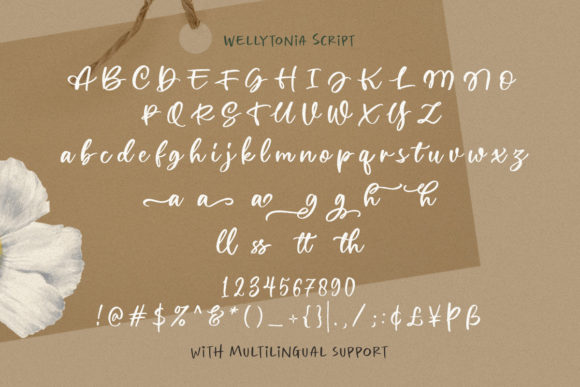 WELLYTONIA SCRIPT
A B C D E F G H I J K L M N O
P Q R S T U V W X Y Z
a b c d e f g h i j k l m n o p q r s t u v w x z
a a a g g h h
ll ss tt th
1234567890
!@#$%^&*()_+{}|.,/;:¢£¥Pß
WITH MULTILINGUAL SUPPORT